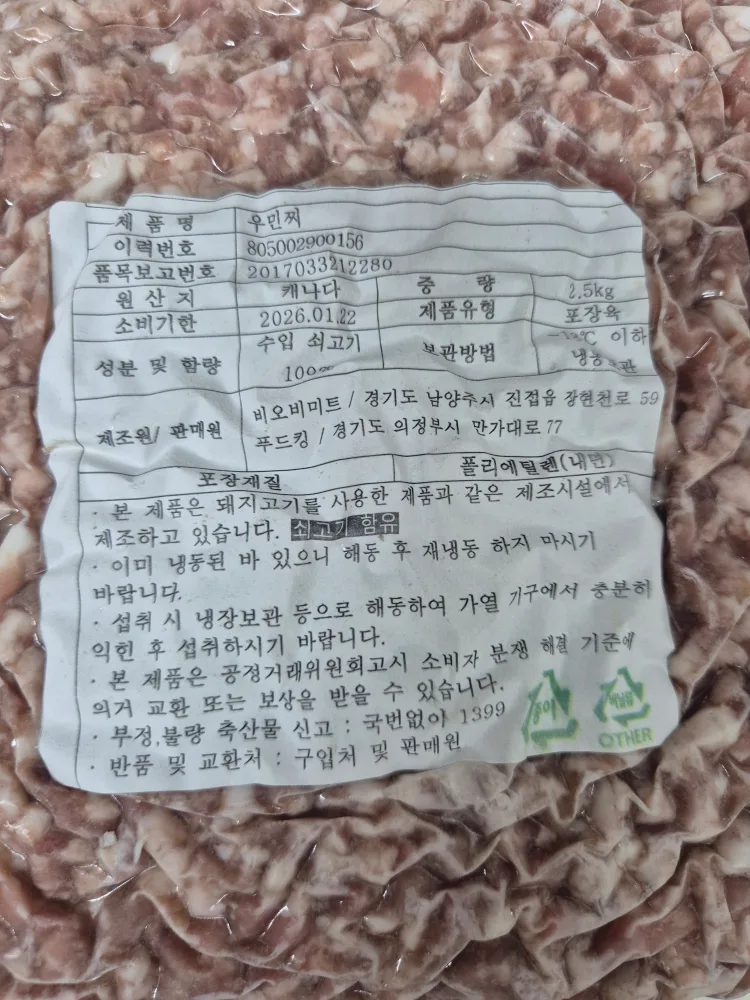 제 품 명 우민찌
이력번호 805002900156
품목보고번호 2017033212280
원 산 지 캐나다 중 량 2.5kg
소비기한 2026.01.22 제품유형 포장육
성분 및 함량 수입 쇠고기 보관방법 이하
100% 냉동보관
제조원/ 판매원 비오비미트 / 경기도 남양주시 진접읍 장현천로 59
푸드킹 / 경기도 의정부시 만가대로77
포장재질 폴리에틸렌(내면)
· 본 제품은 돼지고기를 사용한 제품과 같은 제조시설에서
제조하고 있습니다. 쇠고기 함유
· 이미 냉동된 바 있으니 해동 후 재냉동 하지 마시기
바랍니다.
· 섭취 시 냉장보관 등으로 해동하여 가열 기구에서 충분히
익힌 후 섭취하시기 바랍니다.
· 본 제품은 공정거래위원회고시 소비자 분쟁 해결 기준에
의거 교환 또는 보상을 받을 수 있습니다.
· 부정,불량 축산물 신고 : 국번없이 1399
· 반품 및 교환처 : 구입처 및 판매원
종이
OTHER